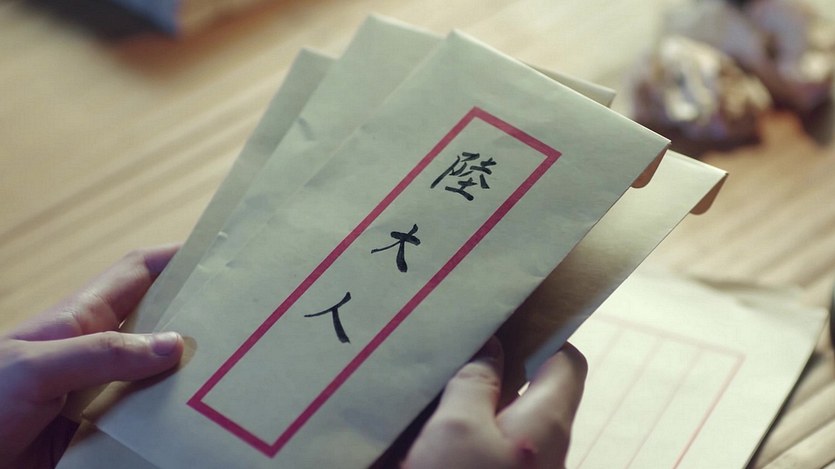 陸大人